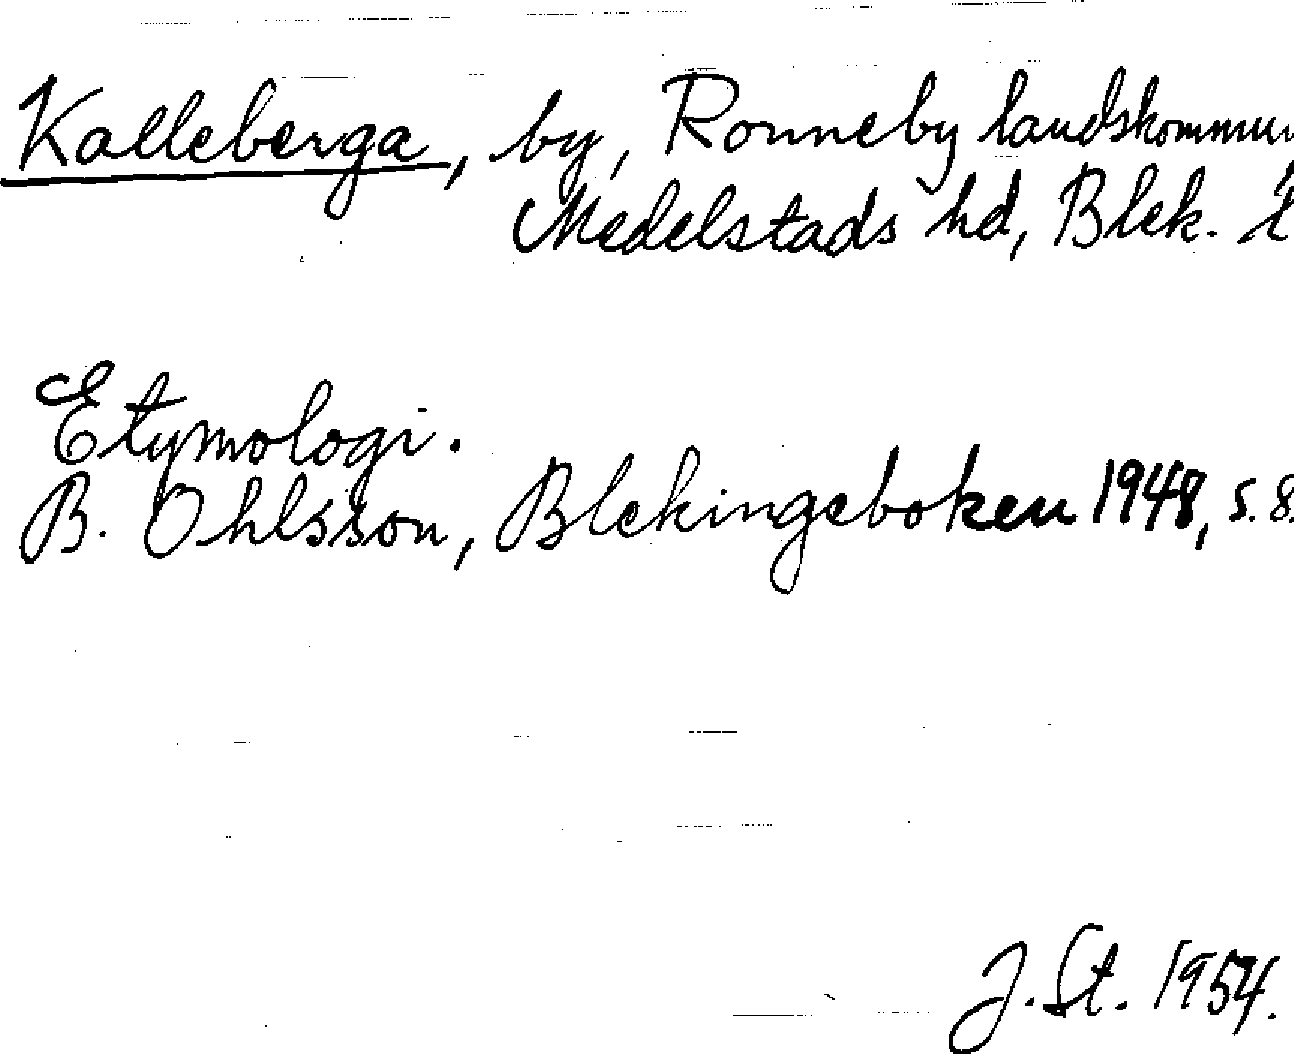 Kalleberga, by, Ronneby landskommun
Medelstads hd, Blek. l
Etymologi.
B. Ohlsson, Blekingeboken 1948, s. 8.
J. St. 1954.